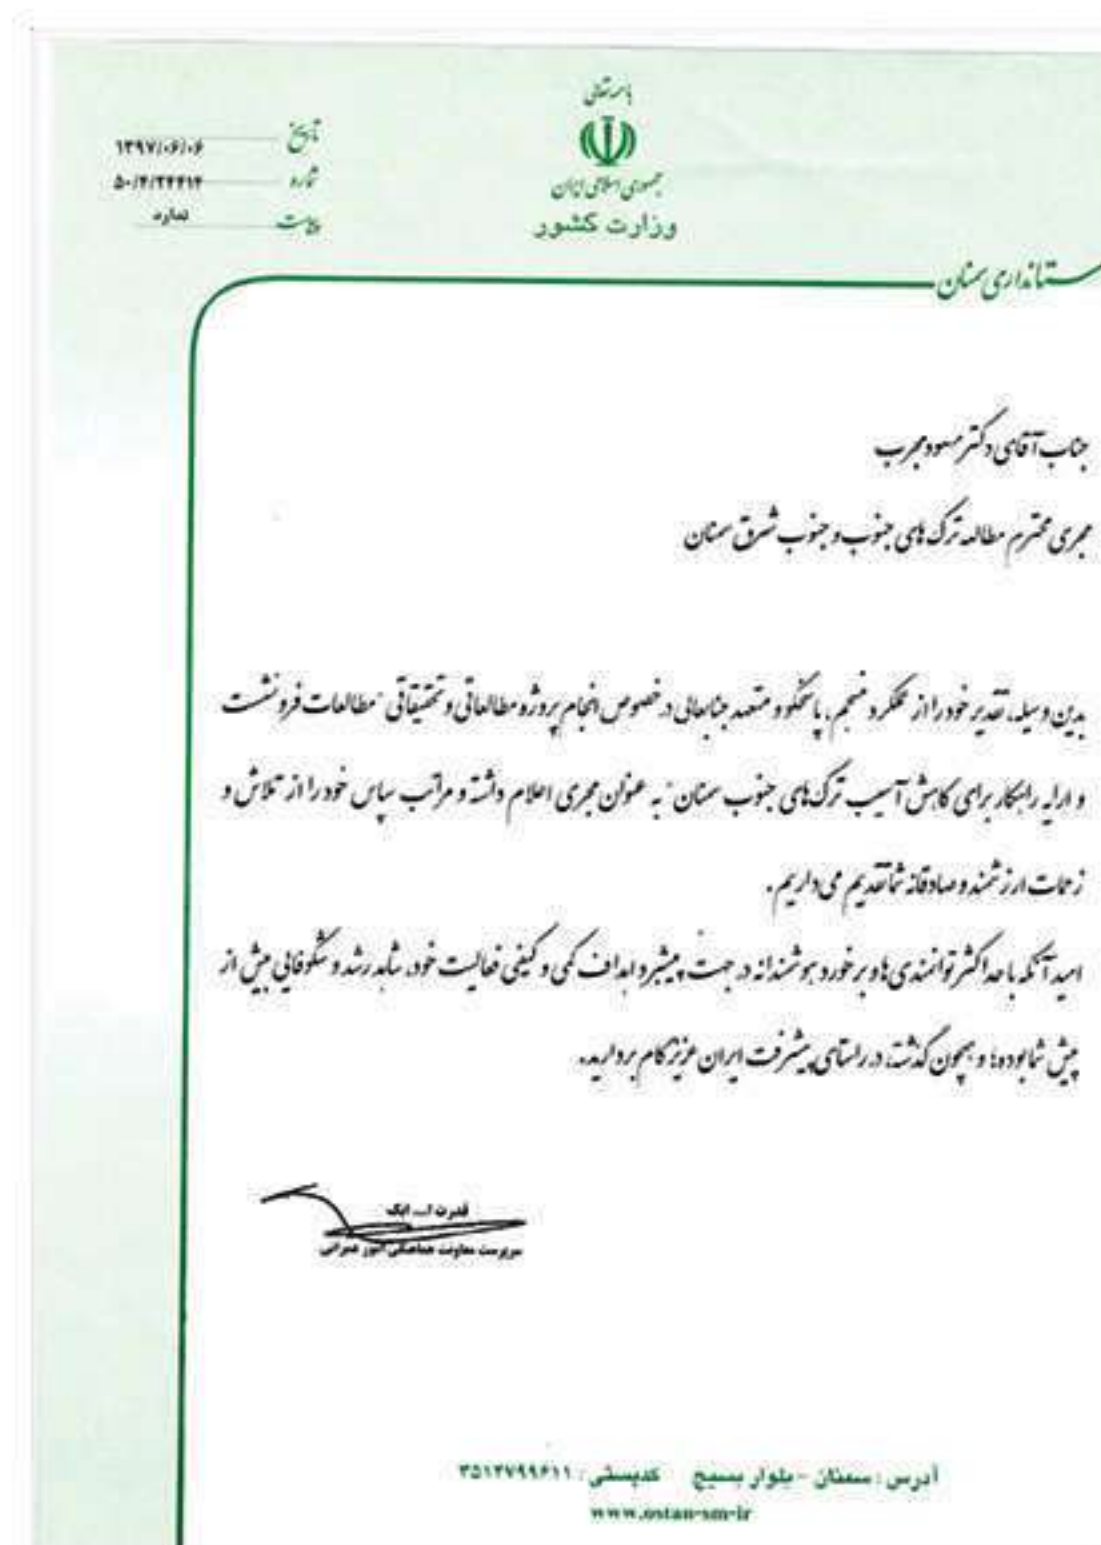 باسمه تعالی
جمهوری اسلامی ایران
وزارت کشور
استانداری سمنان
تاریخ ۱۳۹۷/۰۶/۰۶
شماره
پیوست ندارد
جناب آقای دکتر مسعود مجرب
مجری محترم مطالعه ترک های جنوب و جنوب شرق سمنان
بدین وسیله، تقدیر خود را از عملکرد منسجم، پاسخگو و متعهد جنابعالی در خصوص انجام پروژه مطالعاتی و تحقیقاتی "مطالعات فرونشست
و ارایه راهکار برای کاهش آسیب ترک های جنوب سمنان" به عنوان مجری اعلام داشته و مراتب سپاس خود را از تلاش و
زحمات ارزشمند و صادقانه شما تقدیم می داریم.
امید آنکه با حداکثر توانمندی ها و برخورد هوشمندانه در جهت پیشبرد اهداف کمی و کیفی فعالیت خود، شاهد رشد و شکوفایی بیش از
پیش شما بوده و همچون گذشته، در راستای پیشرفت ایران عزیز گام بردارید.
قدرت ا...
سرپرست معاونت هماهنگی امور عمرانی
آدرس : سمنان - بلوار بسیج کدپستی : ۳۵۱۳۷۹۹۶۱۱
www.ostan-sm-ir